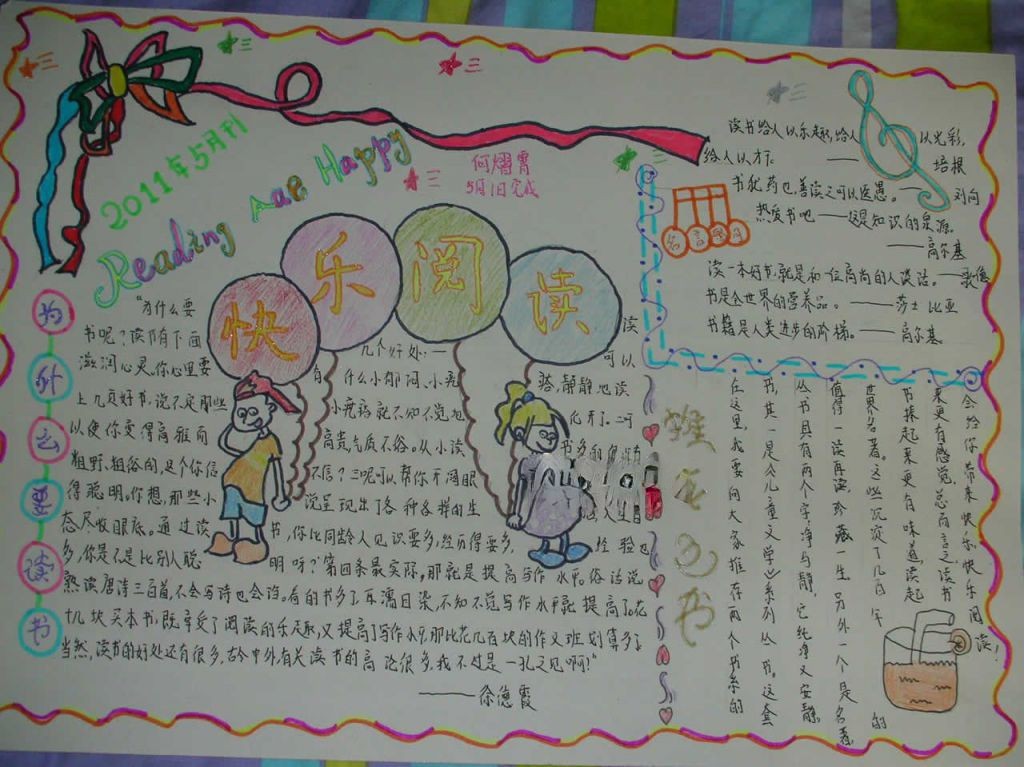 2011年5月刊
Reading Aae Happy
何熠霄
5月1日完成
快乐阅读
为什么要读书
"为什么要读
书呢?读书有下面几个好处:一可以
滋润心灵。你心里要有什么小郁闷、小
上几页好书,说不定那些小疙瘩就不知不觉地
以使你变得高雅而高贵,气质不俗。从小读
粗野、粗俗的,这个你信不信?三呢可以帮你开阔眼
得聪明。你想,那些小说呈现出了各种各样的生
态尽收眼底。通过读书,你比同龄人见识要多,经历得要多,经验也
多,你是不是比别人聪明呀?第四条最实际,那就是提高写作水平。俗话说
熟读唐诗三百首,不会写诗也会诌。看的书多了,耳濡目染,不知不觉写作水平就提高了。花
十几块买本书,既享受了阅读的乐趣,又提高了写作水平,那比花几百块的作文班划算多了。
当然,读书的好处还有很多,古今中外有关读书的高论很多,我不过是一孔之见啊!"
——徐德霞
名言
读书给人以乐趣,给人以光彩,
给人以才干。——培根
书犹药也,善读之可以医愚。——刘向
热爱书吧——这是知识的泉源。
——高尔基
读一本好书,就是和一位高尚的人谈话。——歌德
书是全世界的营养品。——莎士比亚
书籍是人类进步的阶梯。——高尔基
推荐的书
在这里,我要向大家推荐两个书系的
书,其一是《儿童文学》系列丛书。这套
丛书具有两个字:净与静,它纯净又安静,
值得一读再读,珍藏一生。另外一个是名著,
世界名著。这些沉淀了几百年的
书捧起来更有味道,读起
来更有感觉。总而言之,读书
会给你带来快乐,快乐阅读!